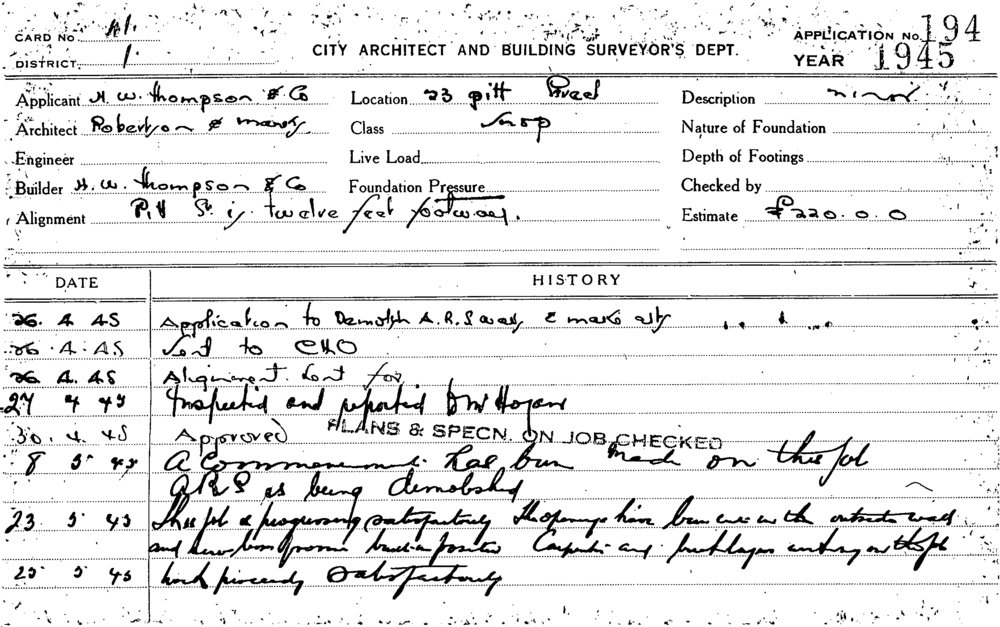 CARD No A1. APPLICATION No. 194
DISTRICT. 1 CITY ARCHITECT AND BUILDING SURVEYOR'S DEPT. YEAR 1945
Applicant H. W. Thompson & Co Location 23 Pitt Street Description minor
Architect Robertson & Marks Class Shop Nature of Foundation
Engineer Live Load Depth of Footings
Builder H. W. Thompson & Co Foundation Pressure Checked by
Alignment Pitt St is twelve feet footway. Estimate £220.0.0
DATE HISTORY
26. 4. 45 Application to Demolish A.R.S away & make
26. 4. 45 Sent to CHO
26 4. 45 Alignment sent for
27 4 45 Inspected and reported Hogan
30. 4. 45 Approved PLANS & SPECN. ON JOB CHECKED
8 5 45 A Commencement has been made on this job
A R S is being demolished
23 5 45 This job is progressing satisfactorily The openings have been cut in the outside wall
and new door frames built in position Carpenters and bricklayers working on the job
25 5 45 work proceeding satisfactorily